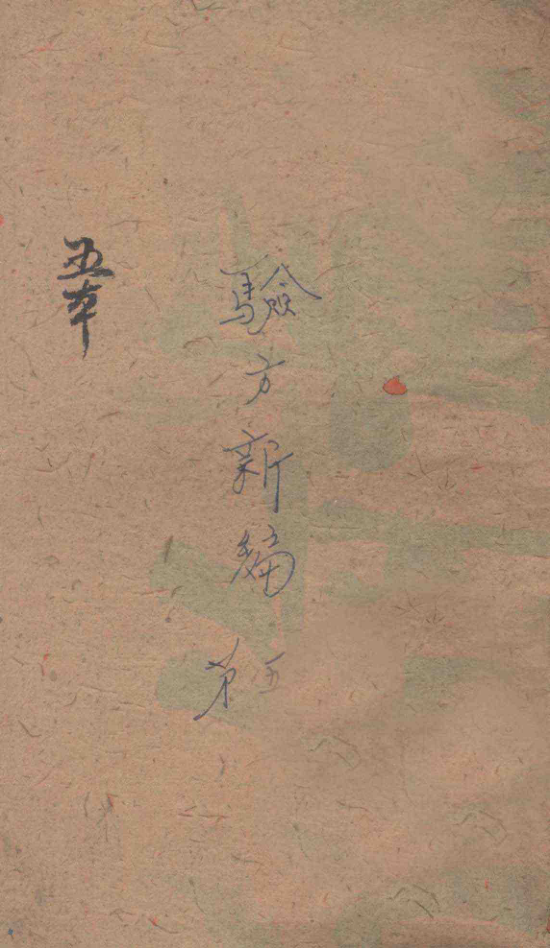 驗方新編 第五
五本